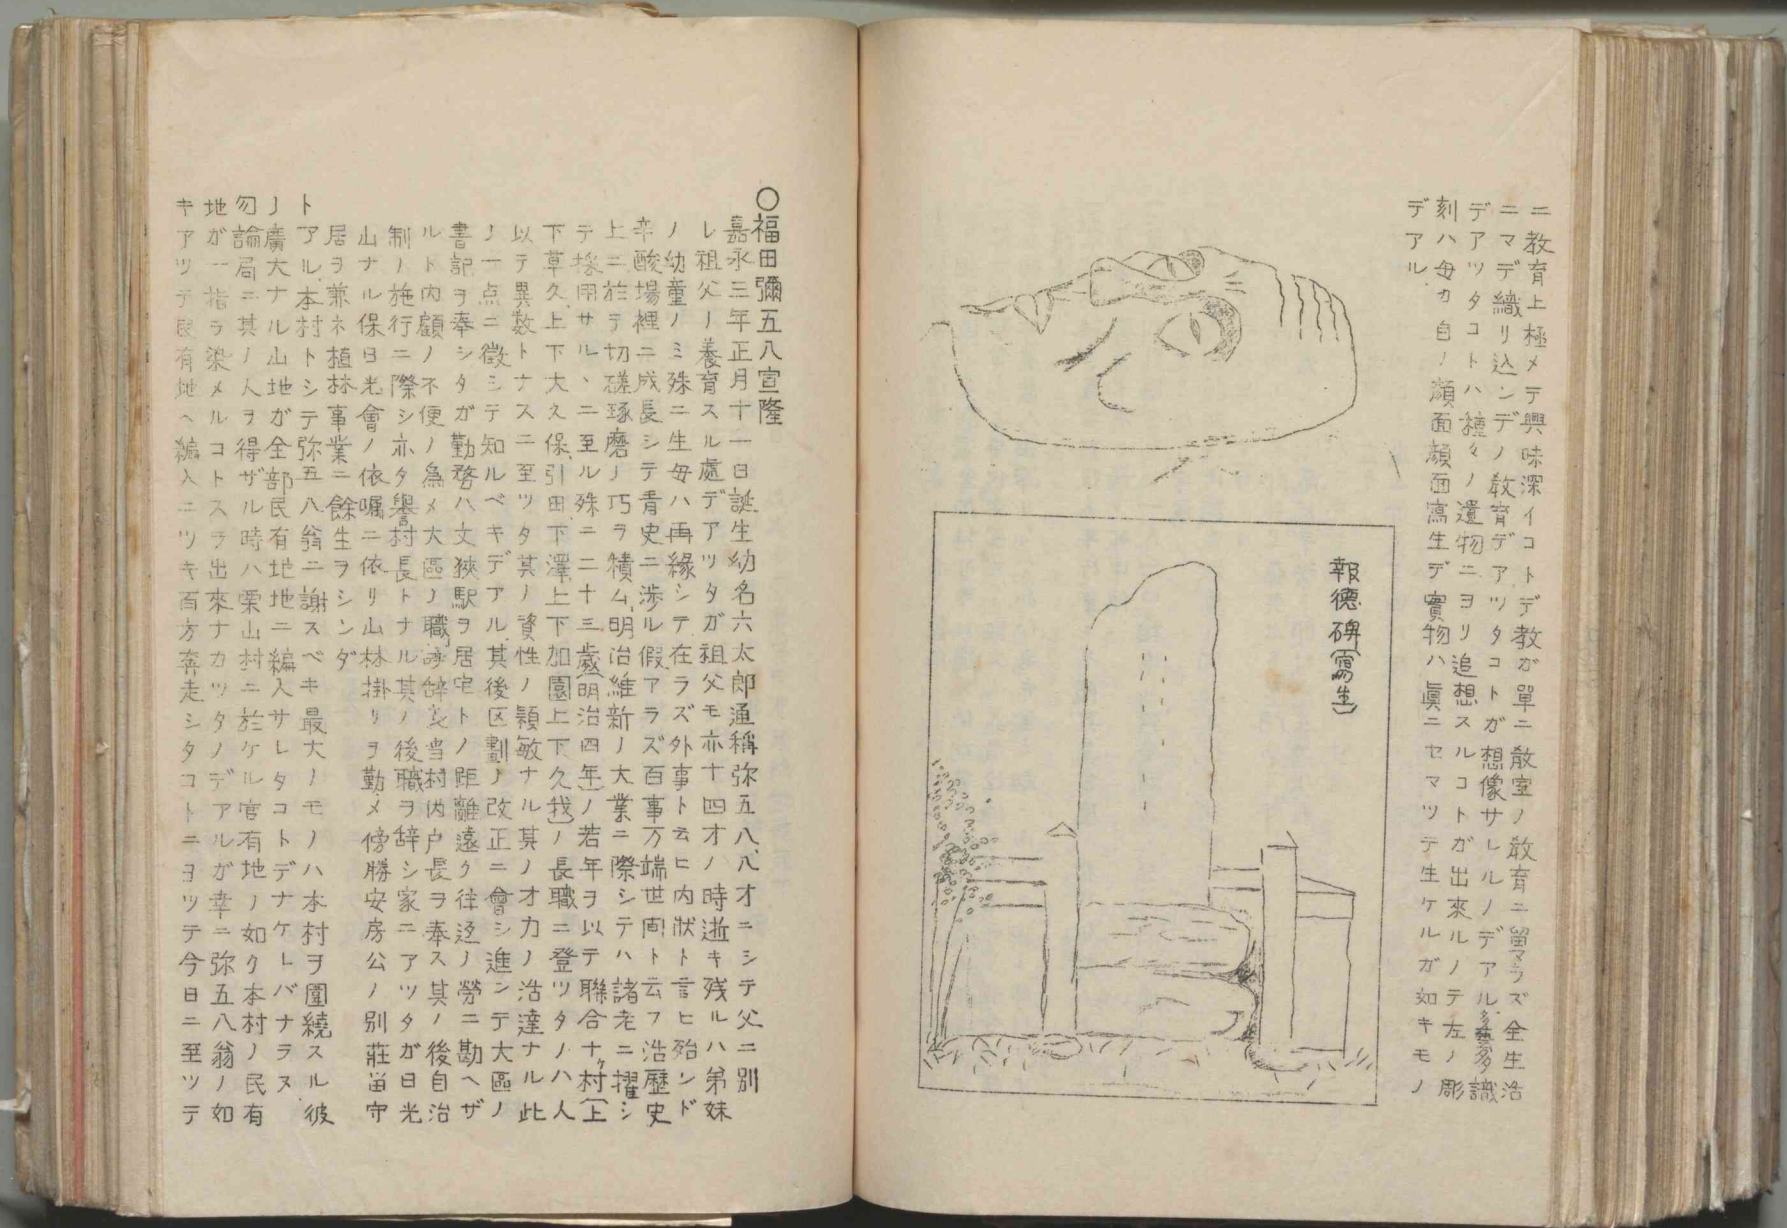 ニ教育上極メテ興味深イコトデ教ガ單ニ教室ノ教育ニ留マラズ全生活
ニマデ織リ込ンデノ教育デアツタコトガ想像サレルノデアル
デアツタコトハ種々ノ遺物ニヨリ追想スルコトガ出來ルノテ左ノ彫
刻ハ母カ自ノ顔面寫生デ實物ハ眞ニセマツテ生ケルガ如キモノ
デアル
報德碑(寫生)
○福田彌五八宣隆
嘉永三年正月十一日誕生幼名六太郎通稱弥五八、八才ニシテ父ニ別
レ祖父ノ養育スル處デアツタガ祖父モ亦十四才ノ時逝キ残ルハ弟妹
ノ幼童ノミ殊ニ生母ハ再緣シテ在ラズ外事ト云ヒ内狀ト言ヒ殆ンド
辛酸場裡ニ成長シテ青史ニ渉ル假アラズ百事万端世間ト云フ浩歷史
上ニ於テ切磋琢磨ノ巧ヲ積ム、明治維新ノ大業ニ際シテハ諸老ニ擢シ
テ採用サル、ニ至ル殊ニ二十三歲(明治四年)ノ若年ヲ以テ聯合十ヶ村(上
下草久、上下大久保、引田、下澤、上下加園、上下久我)ノ長職ニ登ツタノハ人
以テ異数トナスニ至ツタ其ノ資性ノ穎敏ナル其ノオカノ浩達ナル此
ノ一点ニ徵シテ知ルベキデアル、其後区劃ノ改正ニ會シ進ンテ大區ノ
書記ヲ奉シタガ勤務ハ文狹駅ヲ居宅トノ距離遠ク往返ノ勞ニ勘ヘザ
ルト内顧ノ不便ノ爲メ大區ノ職ヲ辞シ当村内戸長ヲ奉ス其ノ後自治
制ノ施行ニ際シ亦タ擧村長トナル其ノ後職ヲ辞シ家ニアツタガ日光
山ナル保日光會ノ依囑ニ依リ山林掛リヲ勤メ傍勝安房公ノ別莊留守
居ヲ兼ネ植林事業ニ餘生ヲシンダ
トアル、本村トシテ弥五八翁ニ謝スベキ最大ノモノハ本村ヲ圍繞スル彼
ノ廣大ナル山地ガ全部民有地ニ編入サレタコトデナケレバナラヌ
勿論局ニ其ノ人ヲ得ザル時ハ栗山村ニ於ケル官有地ノ如ク本村ノ民有
地ガ一指ヲ染メルコトスラ出來ナカツタノデアルガ幸ニ弥五八翁ノ如
キアツテ民有地ヘ編入ニツキ百方奔走シタコトニヨツテ今日ニ至ツテ